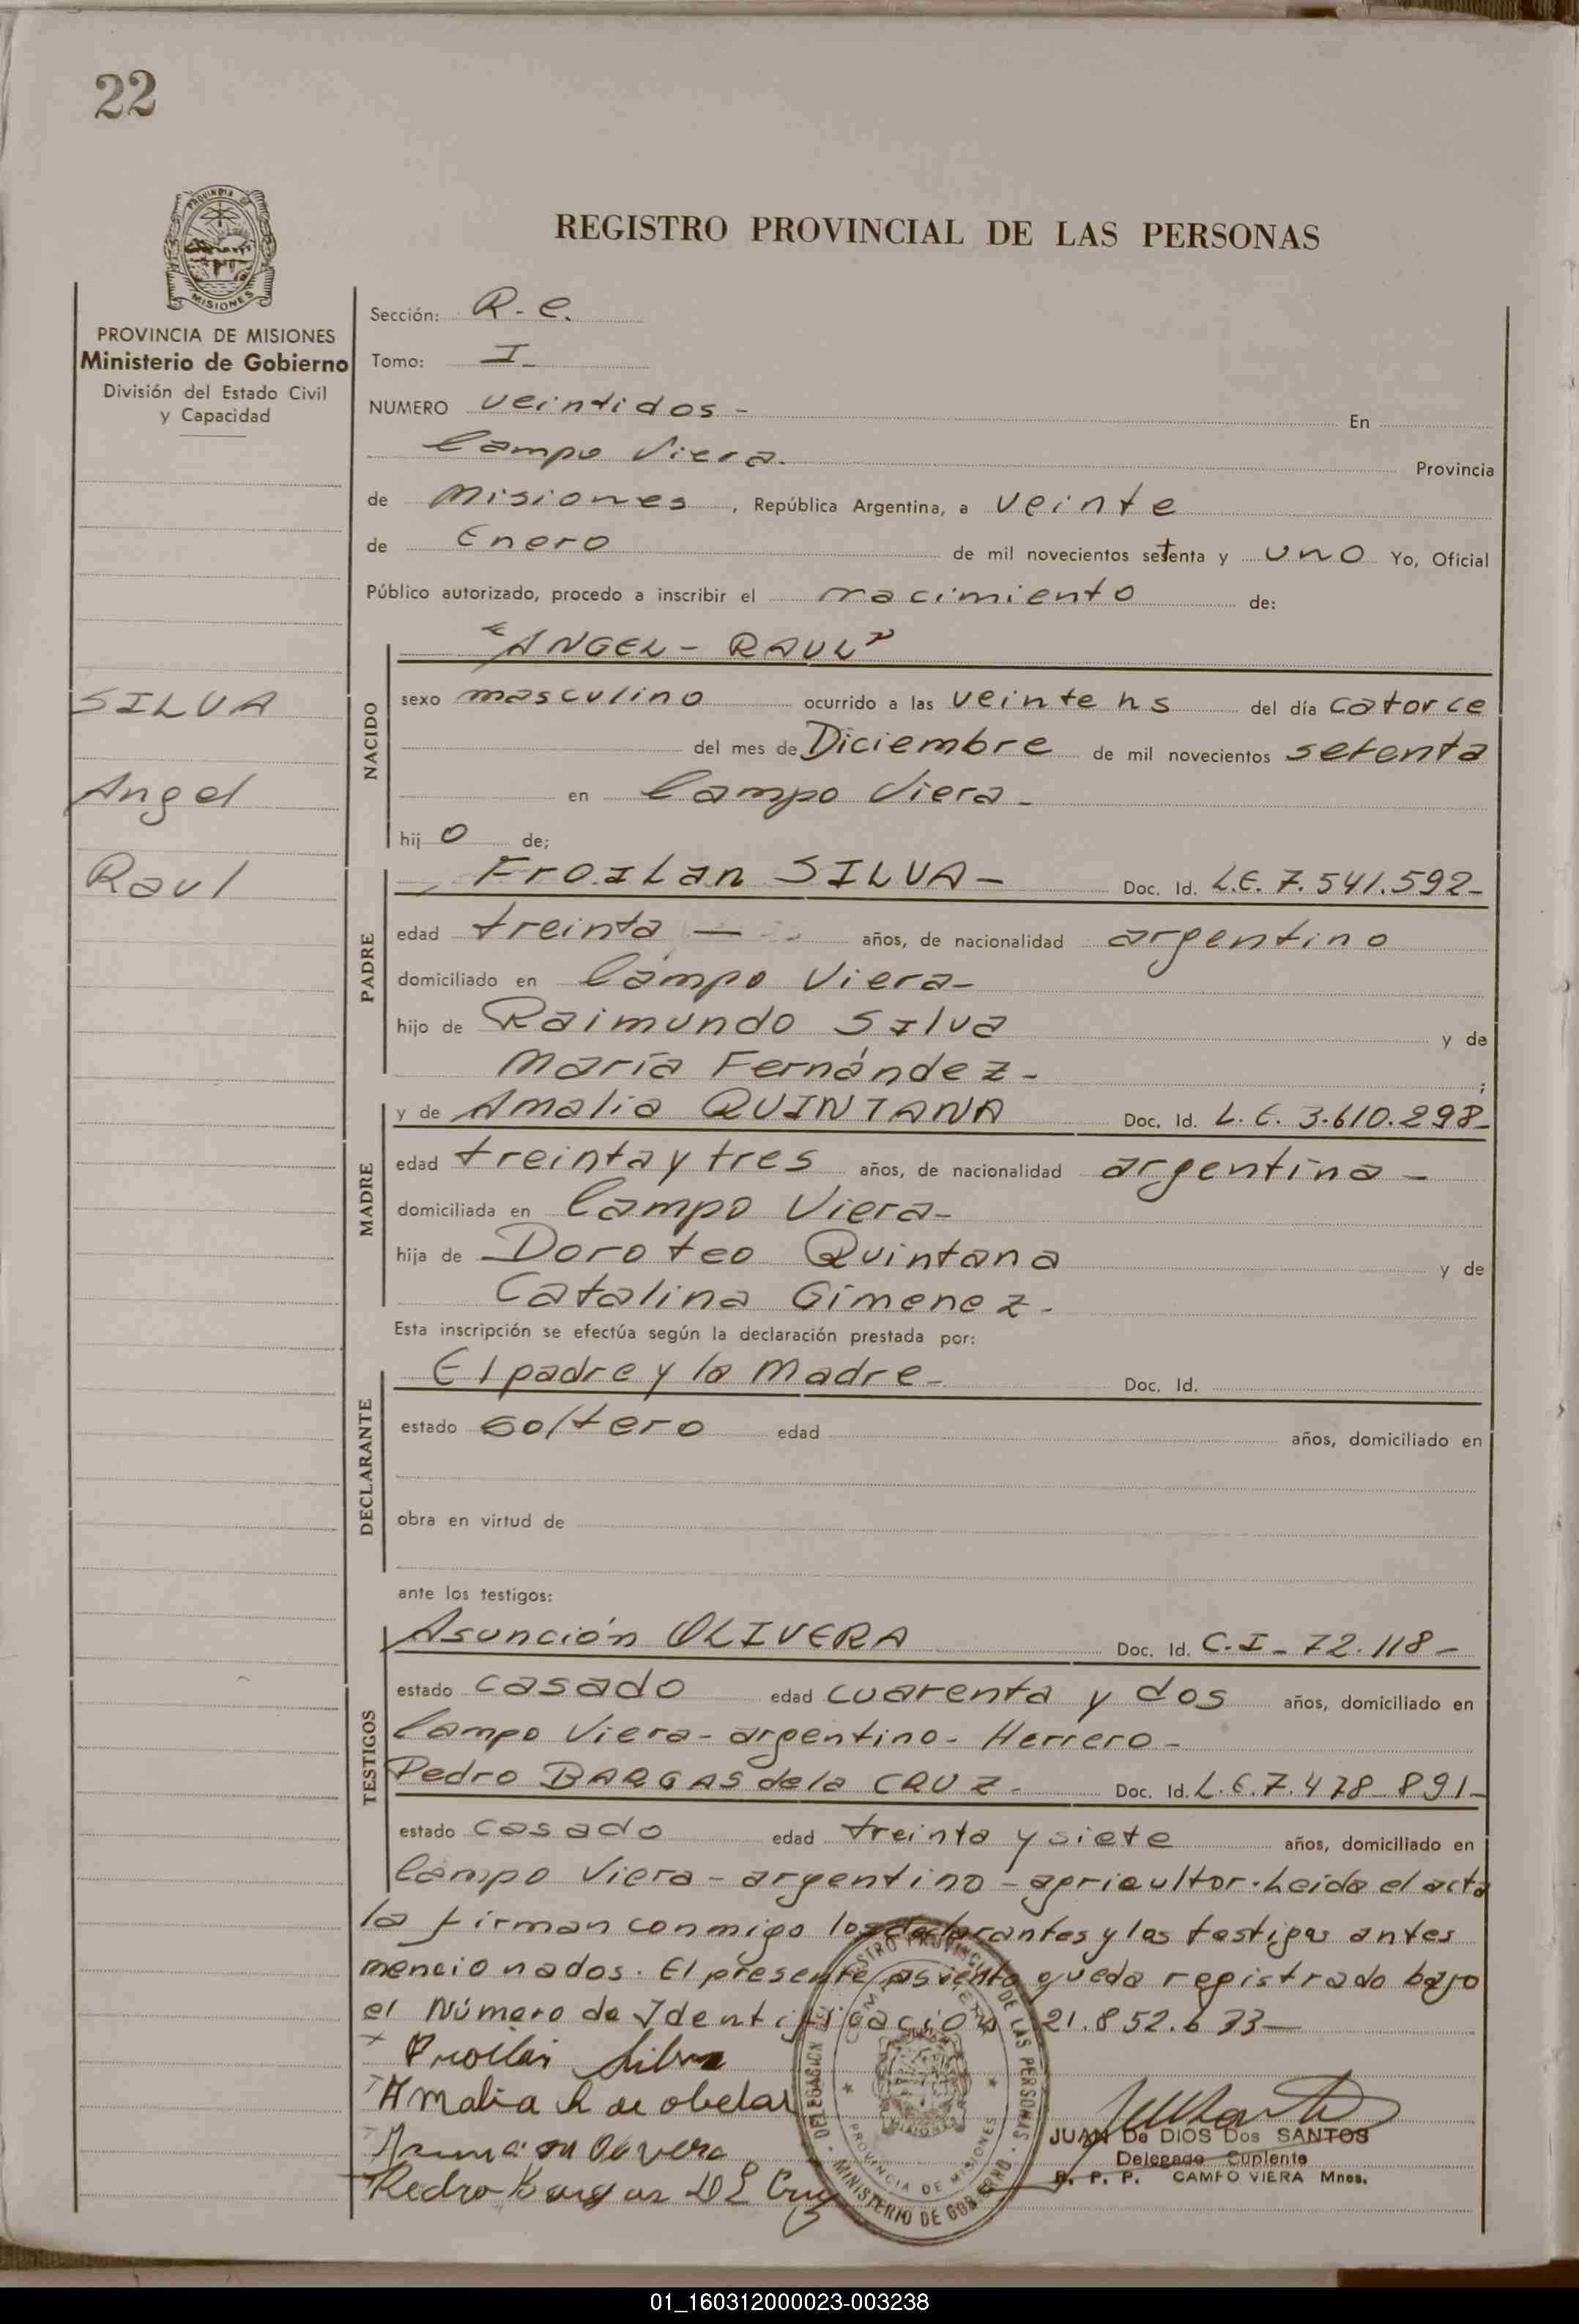 22
PROVINCIA DE
MISIONES
PROVINCIA DE MISIONES
Ministerio de Gobierno
División del Estado Civil
y Capacidad
SILVA
Angel
Raul
REGISTRO PROVINCIAL DE LAS PERSONAS
Sección: R.e.
Tomo: I
NUMERO veintidos - En
Campo Viera. Provincia
de Misiones, República Argentina, a veinte
de Enero de mil novecientos setenta y uno Yo, Oficial
Público autorizado, procedo a inscribir el nacimiento de:
NACIDO
"ANGEL - RAUL"
sexo masculino ocurrido a las veinte hs del día catorce
del mes de Diciembre de mil novecientos setenta
en Campo Viera -
hijo de;
PADRE
Froilan SILVA - Doc. Id. L.E. 7.541.592-
edad treinta — años, de nacionalidad argentino
domiciliado en Campo Viera-
hijo de Raimundo Silva y de
María Fernández - ;
MADRE
y de Amalia QUINTANA Doc. Id. L.E. 3.610.298-
edad treinta y tres años, de nacionalidad argentina -
domiciliada en Campo Viera-
hija de Doroteo Quintana y de
Catalina Gimenez -
Esta inscripción se efectúa según la declaración prestada por:
DECLARANTE
El padre y la Madre- Doc. Id.
estado soltero edad años, domiciliado en
obra en virtud de
ante los testigos:
TESTIGOS
Asunción OLIVERA Doc. Id. C.I - 72.118-
estado casado edad cuarenta y dos años, domiciliado en
Campo Viera - argentino - Herrero -
Pedro BARGAS de la CRUZ - Doc. Id. L.E. 7.478 891-
estado casado edad treinta y siete años, domiciliado en
Campo Viera - argentino - agricultor. Leida el acta
la firman conmigo los declarantes y los testigos antes
mencionados. El presente asiento queda registrado bajo
el Número de Identificación 21.852.633—
Froilan Silva
Amalia
Asuncion Olivera
Pedro Bargas DL Cruz
DELEGACION DEL REGISTRO PROVINCIAL DE LAS PERSONAS
CAMPO VIERA
PROVINCIA DE MISIONES
MINISTERIO DE GOBIERNO
JUAN De DIOS Dos SANTOS
Delegado Suplente
R. P. P. CAMPO VIERA Mnes.
01_160312000023-003238